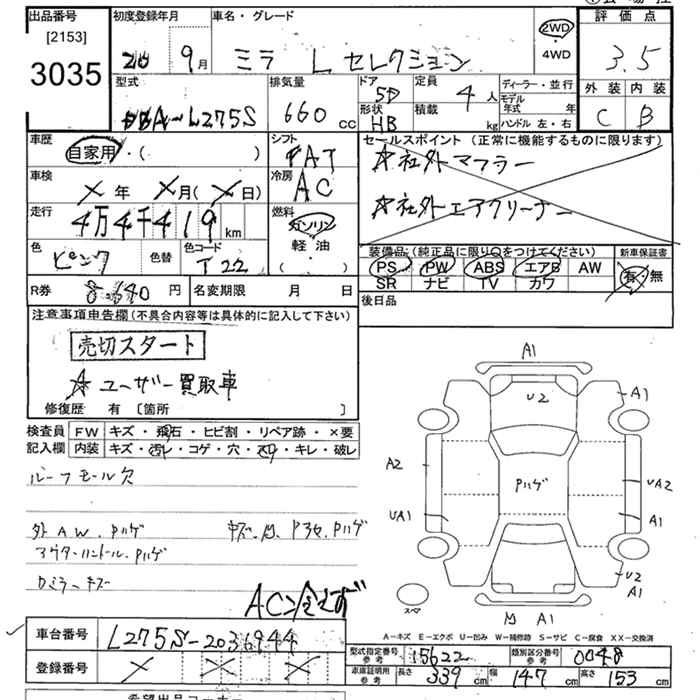 出品番号
[2153]
3035
初度登録年月
20 9月
車名・グレード
ミラ L セレクション
2WD
・
4WD
評価点
3.5
外装 内装
C B
型式
DBA-L275S
排気量
660 cc
ドア
5D
形状
HB
定員
4人
積載
kg
ディーラー・並行
モデル年式 年
ハンドル 左・右
車歴
自家用・( )
シフト
FAT
車検
× 年 × 月( × 日)
冷房
AC
走行
4万4千419km
燃料
ガソリン
軽・油
( )
色
ピンク
色替
色コード
T22
R券
8.640円
名変期限 月 日
セールスポイント (正常に機能するものに限ります)
☆社外マフラー
☆社外エアクリーナー
装備品(純正品に限り○をつけてください)
PS PW ABS エアB AW
SR ナビ TV カワ
新車保証書
有・無
後日品
注意事項申告欄(不具合内容等は具体的に記入して下さい)
売切スタート
☆ユーザー買取車
修復歴 有 [箇所 ]
検査員記入欄
FW キズ・飛石・ヒビ割・リペア跡・×要
内装 キズ・汚レ・コゲ・穴・ヌケ・キレ・破レ
ルーフモール欠
外AW.Pハゲ
アウターハンドル.Pハゲ
Rミラーキズ
ACン
A1
U2
A1
A2
Pハゲ
UA2
UA1
A1
U2
A1
A1
スペア
A−キズ E−エクボ U−凹み W−補修跡 S−サビ C−腐食 XX−交換済
車台番号
L275S-2036944
登録番号
× × ×
型式指定番号
参考
15622
類別区分番号
参考
0048
車庫証明用
参考
長さ 339cm 幅 147cm 高さ 153cm